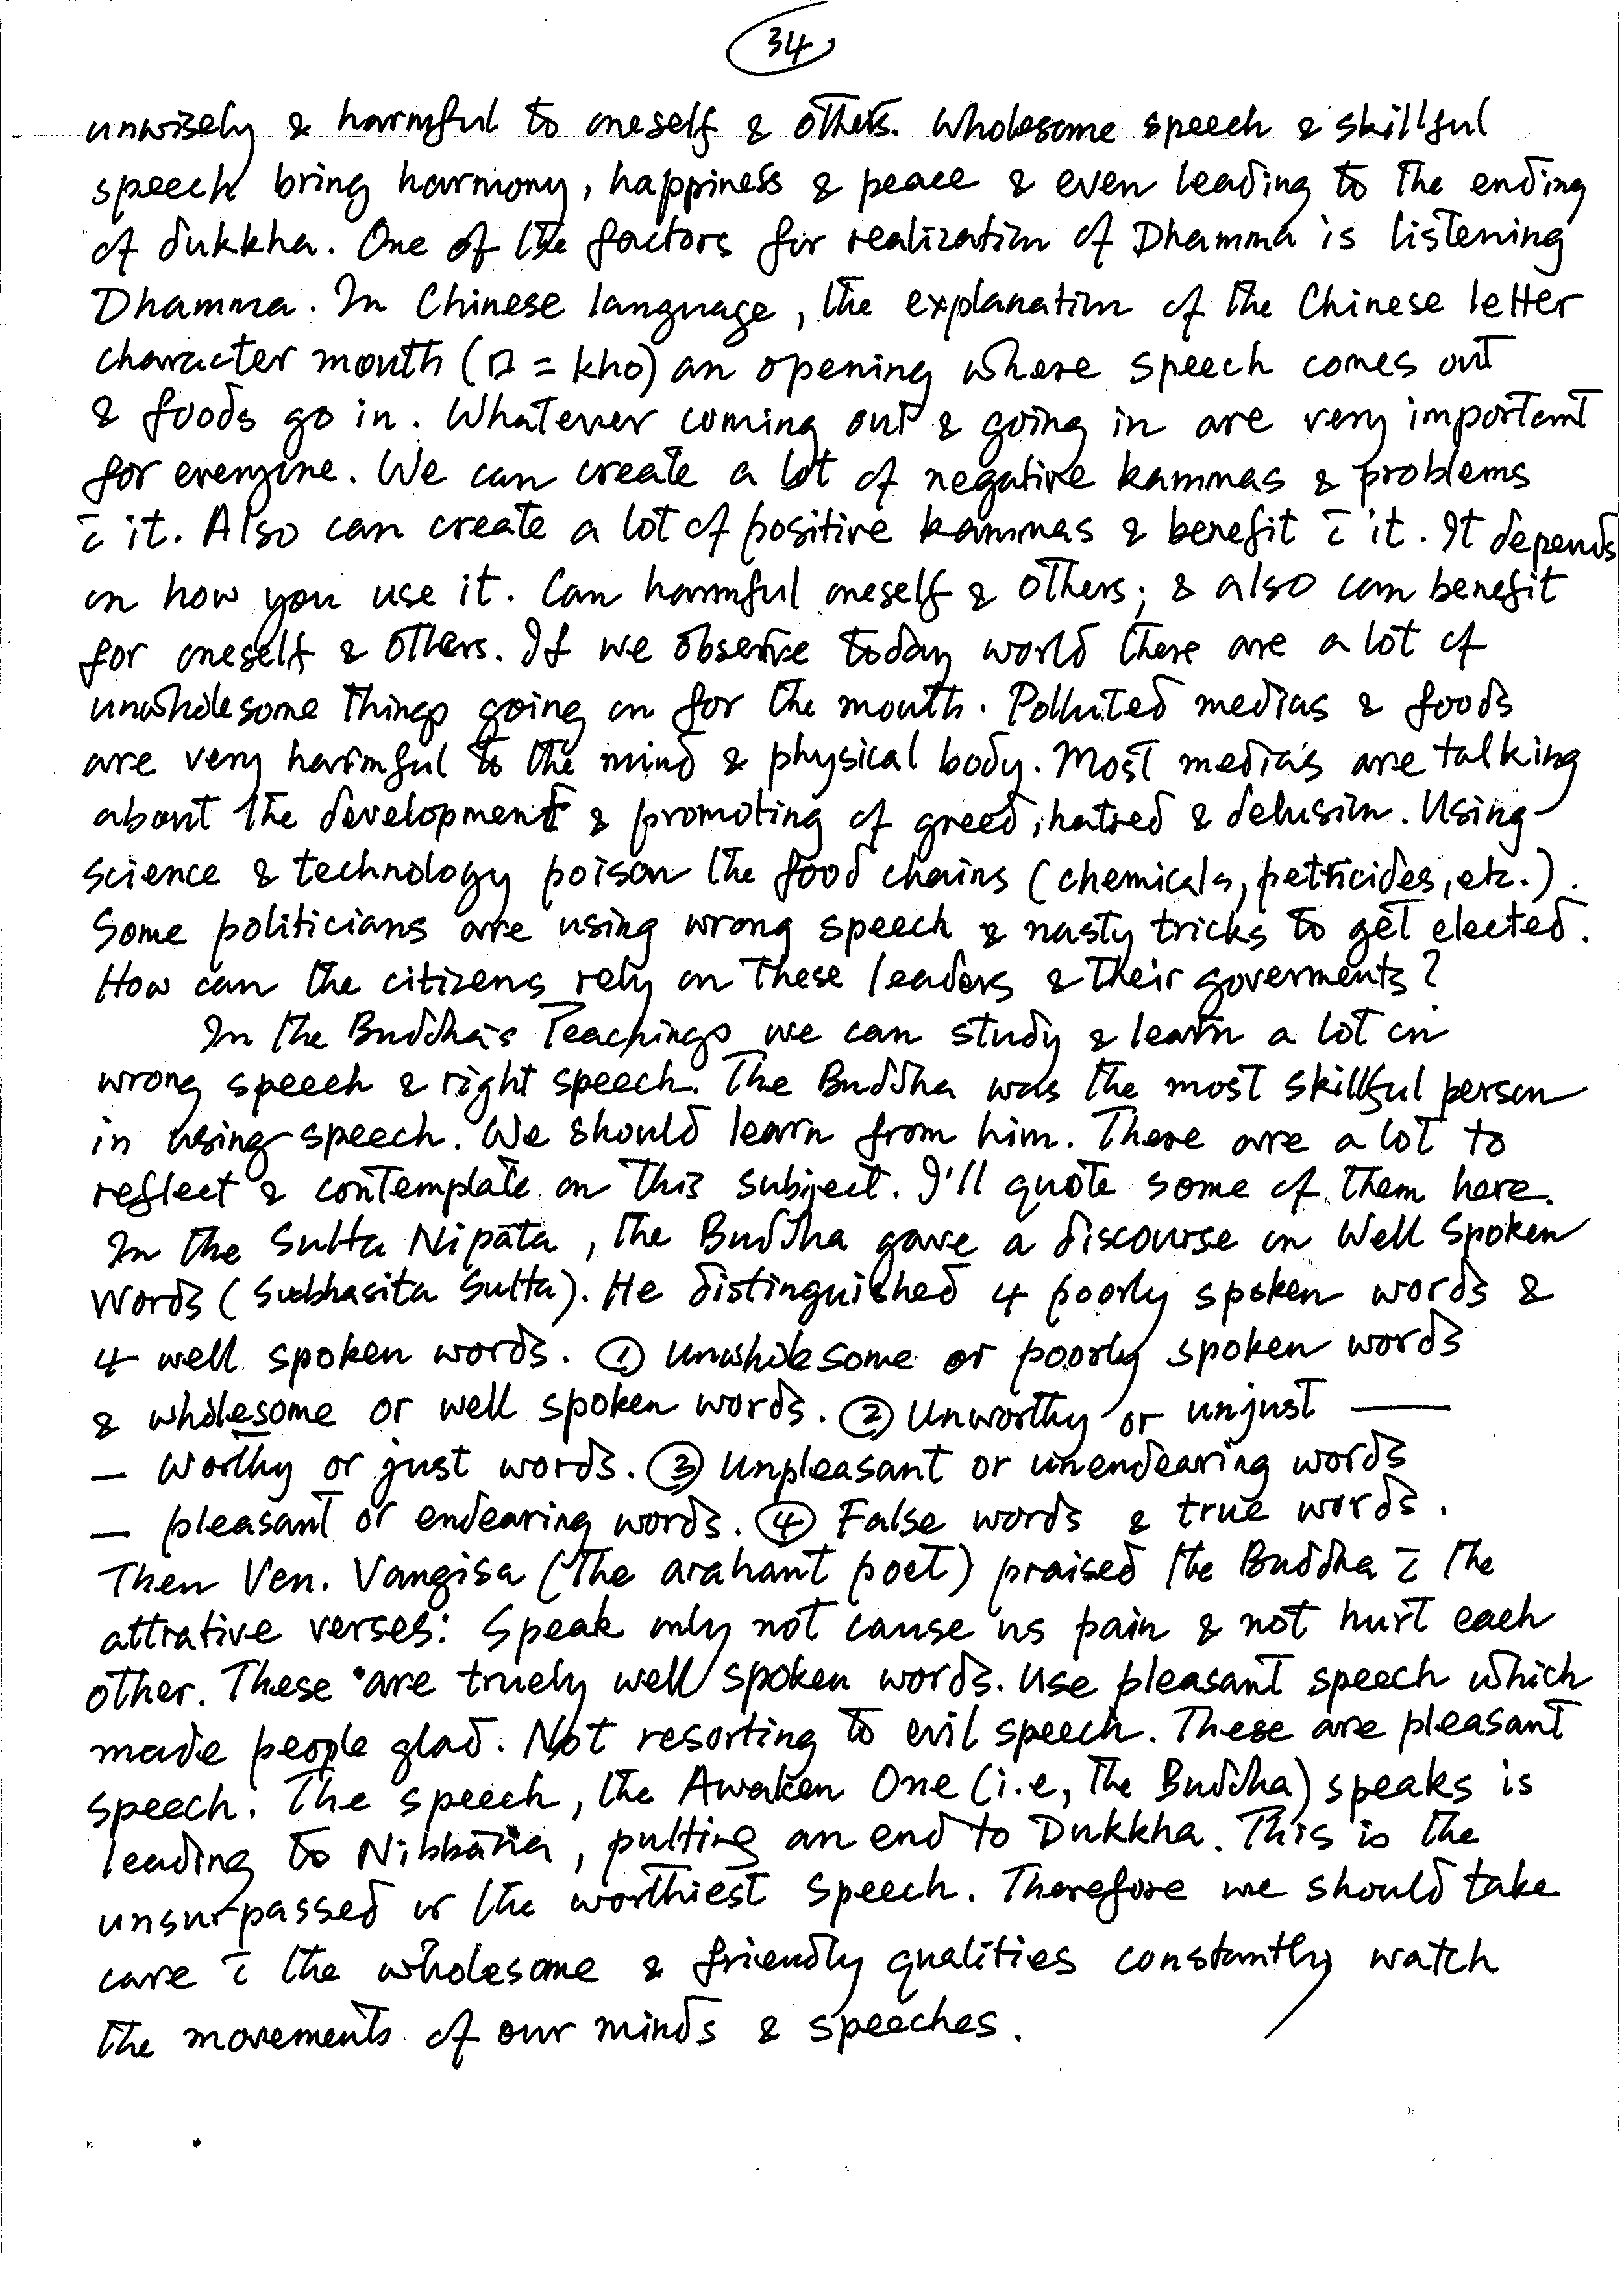 34
unwisely & harmful to oneself & others. Wholesome speech & skillful
speech bring harmony, happiness & peace & even leading to the ending
of dukkha. One of the factors for realization of Dhamma is listening
Dhamma. In Chinese language, the explanation of the Chinese letter
character mouth (口 = kho) an opening where speech comes out
& foods go in. Whatever coming out & going in are very important
for everyone. We can create a lot of negative kammas & problems
c̄ it. Also can create a lot of positive kammas & benefit c̄ it. It depends
on how you use it. Can harmful oneself & others; & also can benefit
for oneself & others. If we observe today world there are a lot of
unwholesome things going on for the mouth. Polluted medias & foods
are very harmful to the mind & physical body. Most medias are talking
about the development & promoting of greed, hatred & delusion. Using
science & technology poison the food chains (chemicals, petticides, etc.).
Some politicians are using wrong speech & nasty tricks to get elected.
How can the citizens rely on these leaders & their goverments?
In the Buddha's Teachings we can study & learn a lot on
wrong speech & right speech. The Buddha was the most skillful person
in using speech. We should learn from him. There are a lot to
reflect & contemplate on this subject. I'll quote some of them here.
In the Sutta Nipāta, the Buddha gave a discourse on Well Spoken
Words (Subhasita Sutta). He distinguished 4 poorly spoken words &
4 well spoken words. ① Unwholesome or poorly spoken words
& wholesome or well spoken words. ② Unworthy or unjust —
— Worthy or just words. ③ Unpleasant or unendearing words
— pleasant or endearing words. ④ False words & true words.
Then Ven. Vangisa (the arahant poet) praised the Buddha c̄ the
attrative verses: Speak only not cause us pain & not hurt each
other. These are truely well spoken words. Use pleasant speech which
made people glad. Not resorting to evil speech. These are pleasant
speech. The speech, the Awaken One (i.e, the Buddha) speaks is
leading to Nibbāna, putting an end to Dukkha. This is the
unsurpassed or the worthiest speech. Therefore we should take
care c̄ the wholesome & friendly qualities constantly watch
the movements of our minds & speeches.